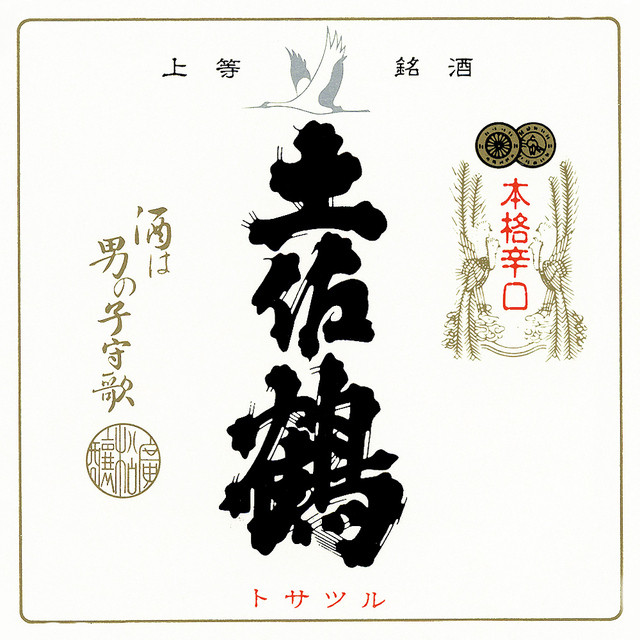 上等 銘酒
土佐鶴
本格辛口
酒は
男の子守歌
トサツル